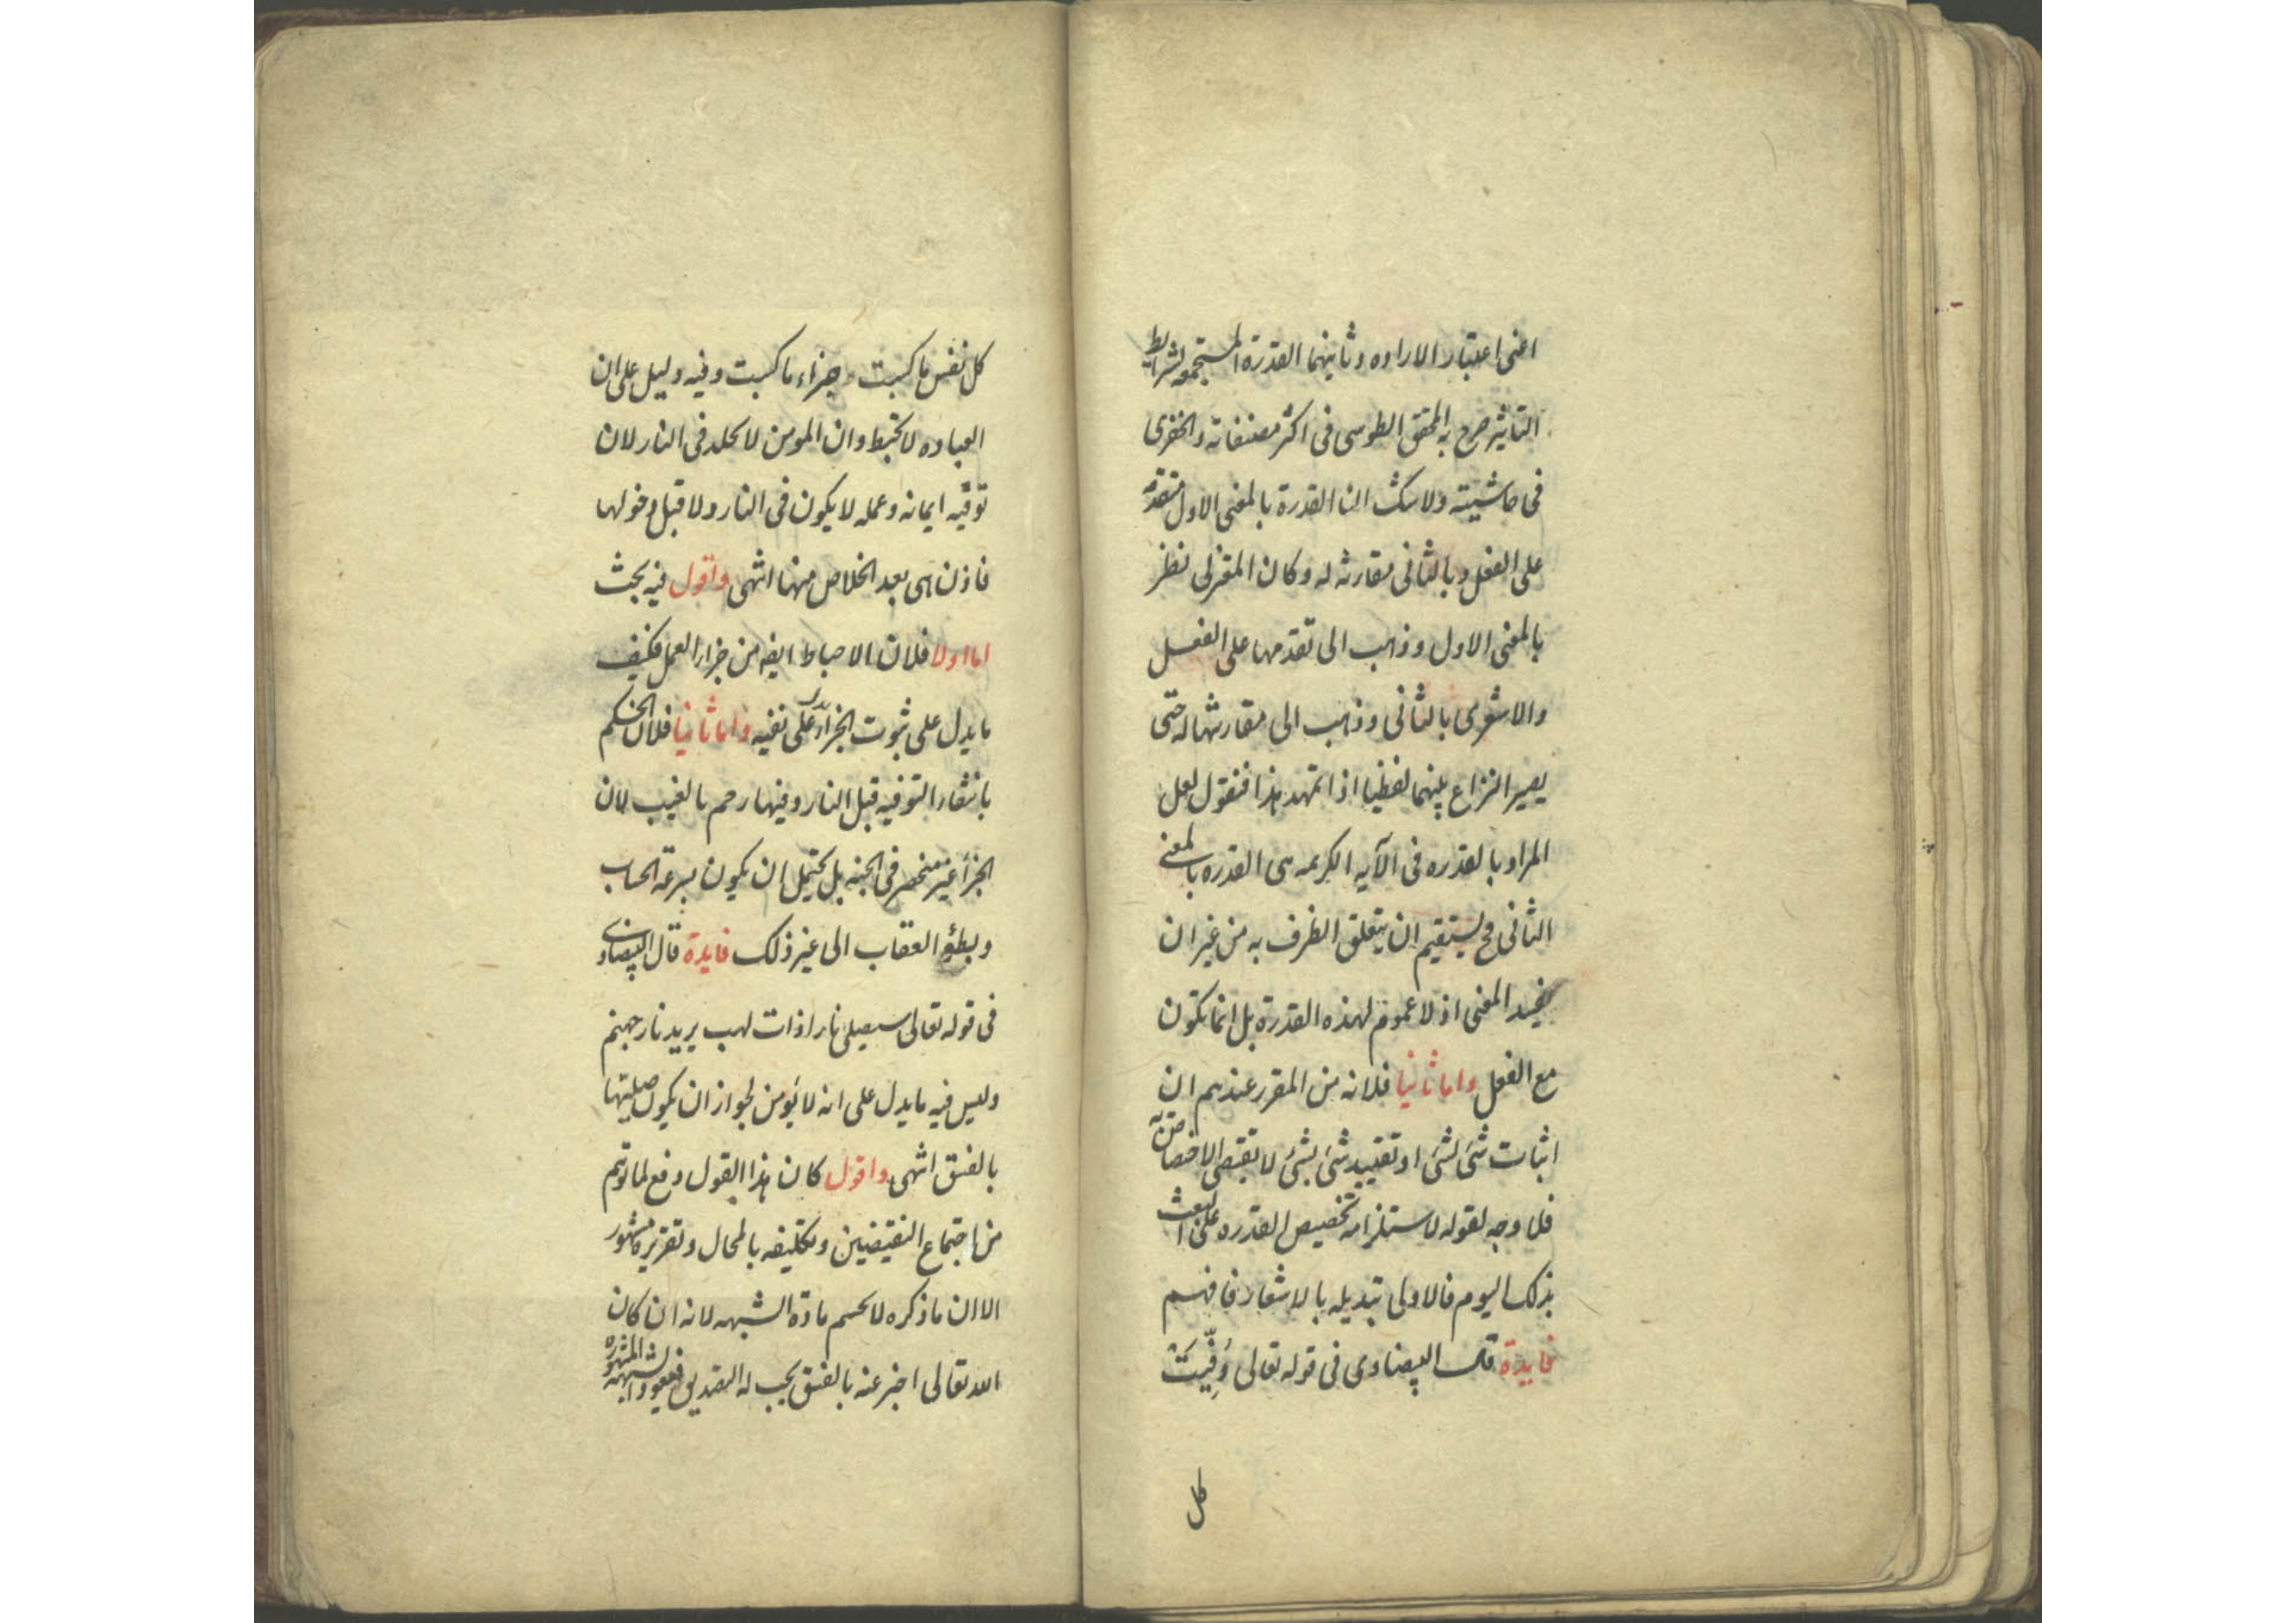 اعنى اعتبار الاراده وثانيهما القدرة المستجمعه لشرايط
التاثير صرح به المحقق الطوسى فى اكثر مصنفاته والخفرى
فى حاشيته ولا شك ان القدرة بالمعنى الاول متقدمه
على الفعل وبالثانى مقارنه له وكان المعتزلى نظر
بالمعنى الاول وذهب الى تقدمها على الفعل
والاشعرى بالثانى وذهب الى مقارنتها له حتى
يصير النزاع بينهما لفظيا اذا تمهد هذا فنقول لعل
المراد بالقدره فى الآيه الكريمه هى القدره بالمعنى
الثانى وح يستقيم ان يتعلق الظرف به من غير ان
يفيد المعنى اذ لا عموم لهذه القدرة بل انما تكون
مع الفعل واما ثانيا فلانه من المقرر عندهم ان
اثبات شئ لشئ او تقييد شئ بشئ لا تقتضى الاختصاص به
فلا وجه لقوله لاستلزامه تخصيص القدره على البعث
بذلك اليوم فالاولى تبديله بالاشعار فافهم
فايدة قال البيضاوى فى قوله تعالى وُفِّيَتْ
كل
كل نفس ما كسبت جزاء ما كسبت وفيه دليل على ان
العباده لا تحبط وان المومن لا يخلد فى النار لان
توفيه ايمانه وعمله لا يكون فى النار ولا قبل دخولها
فاذن هى بعد الخلاص منها انتهى واقول فيه بحث
اما اولا فلان الاحباط ايضه من جزاء العمل فكيف
ما يدل على ثبوت الجزاء على نفيه واما ثانيا فلان الحكم
بانتفاء التوفيه قبل النار وفيها رجم بالغيب لان
الجزأ غير منحصر فى الجنه بل يحتمل ان يكون بسرعة الحساب
وبطئ العقاب الى غير ذلك فايدة قال البيضاوى
فى قوله تعالى سيصلى نارا ذات لهب يريد نار جهنم
وليس فيه ما يدل على انه لا يؤمن لجواز ان يكون صليتها
بالفسق انتهى واقول كان هذا القول دفع لما توهم
من اجتماع النقيضين وتكليفه بالمحال وتقريره مشهور
الا ان ما ذكره لا يحسم مادة الشبهه لانه ان كان
الله تعالى اخبر عنه بالفسق يجب له التصديق فيعود الشبهه المشهوره